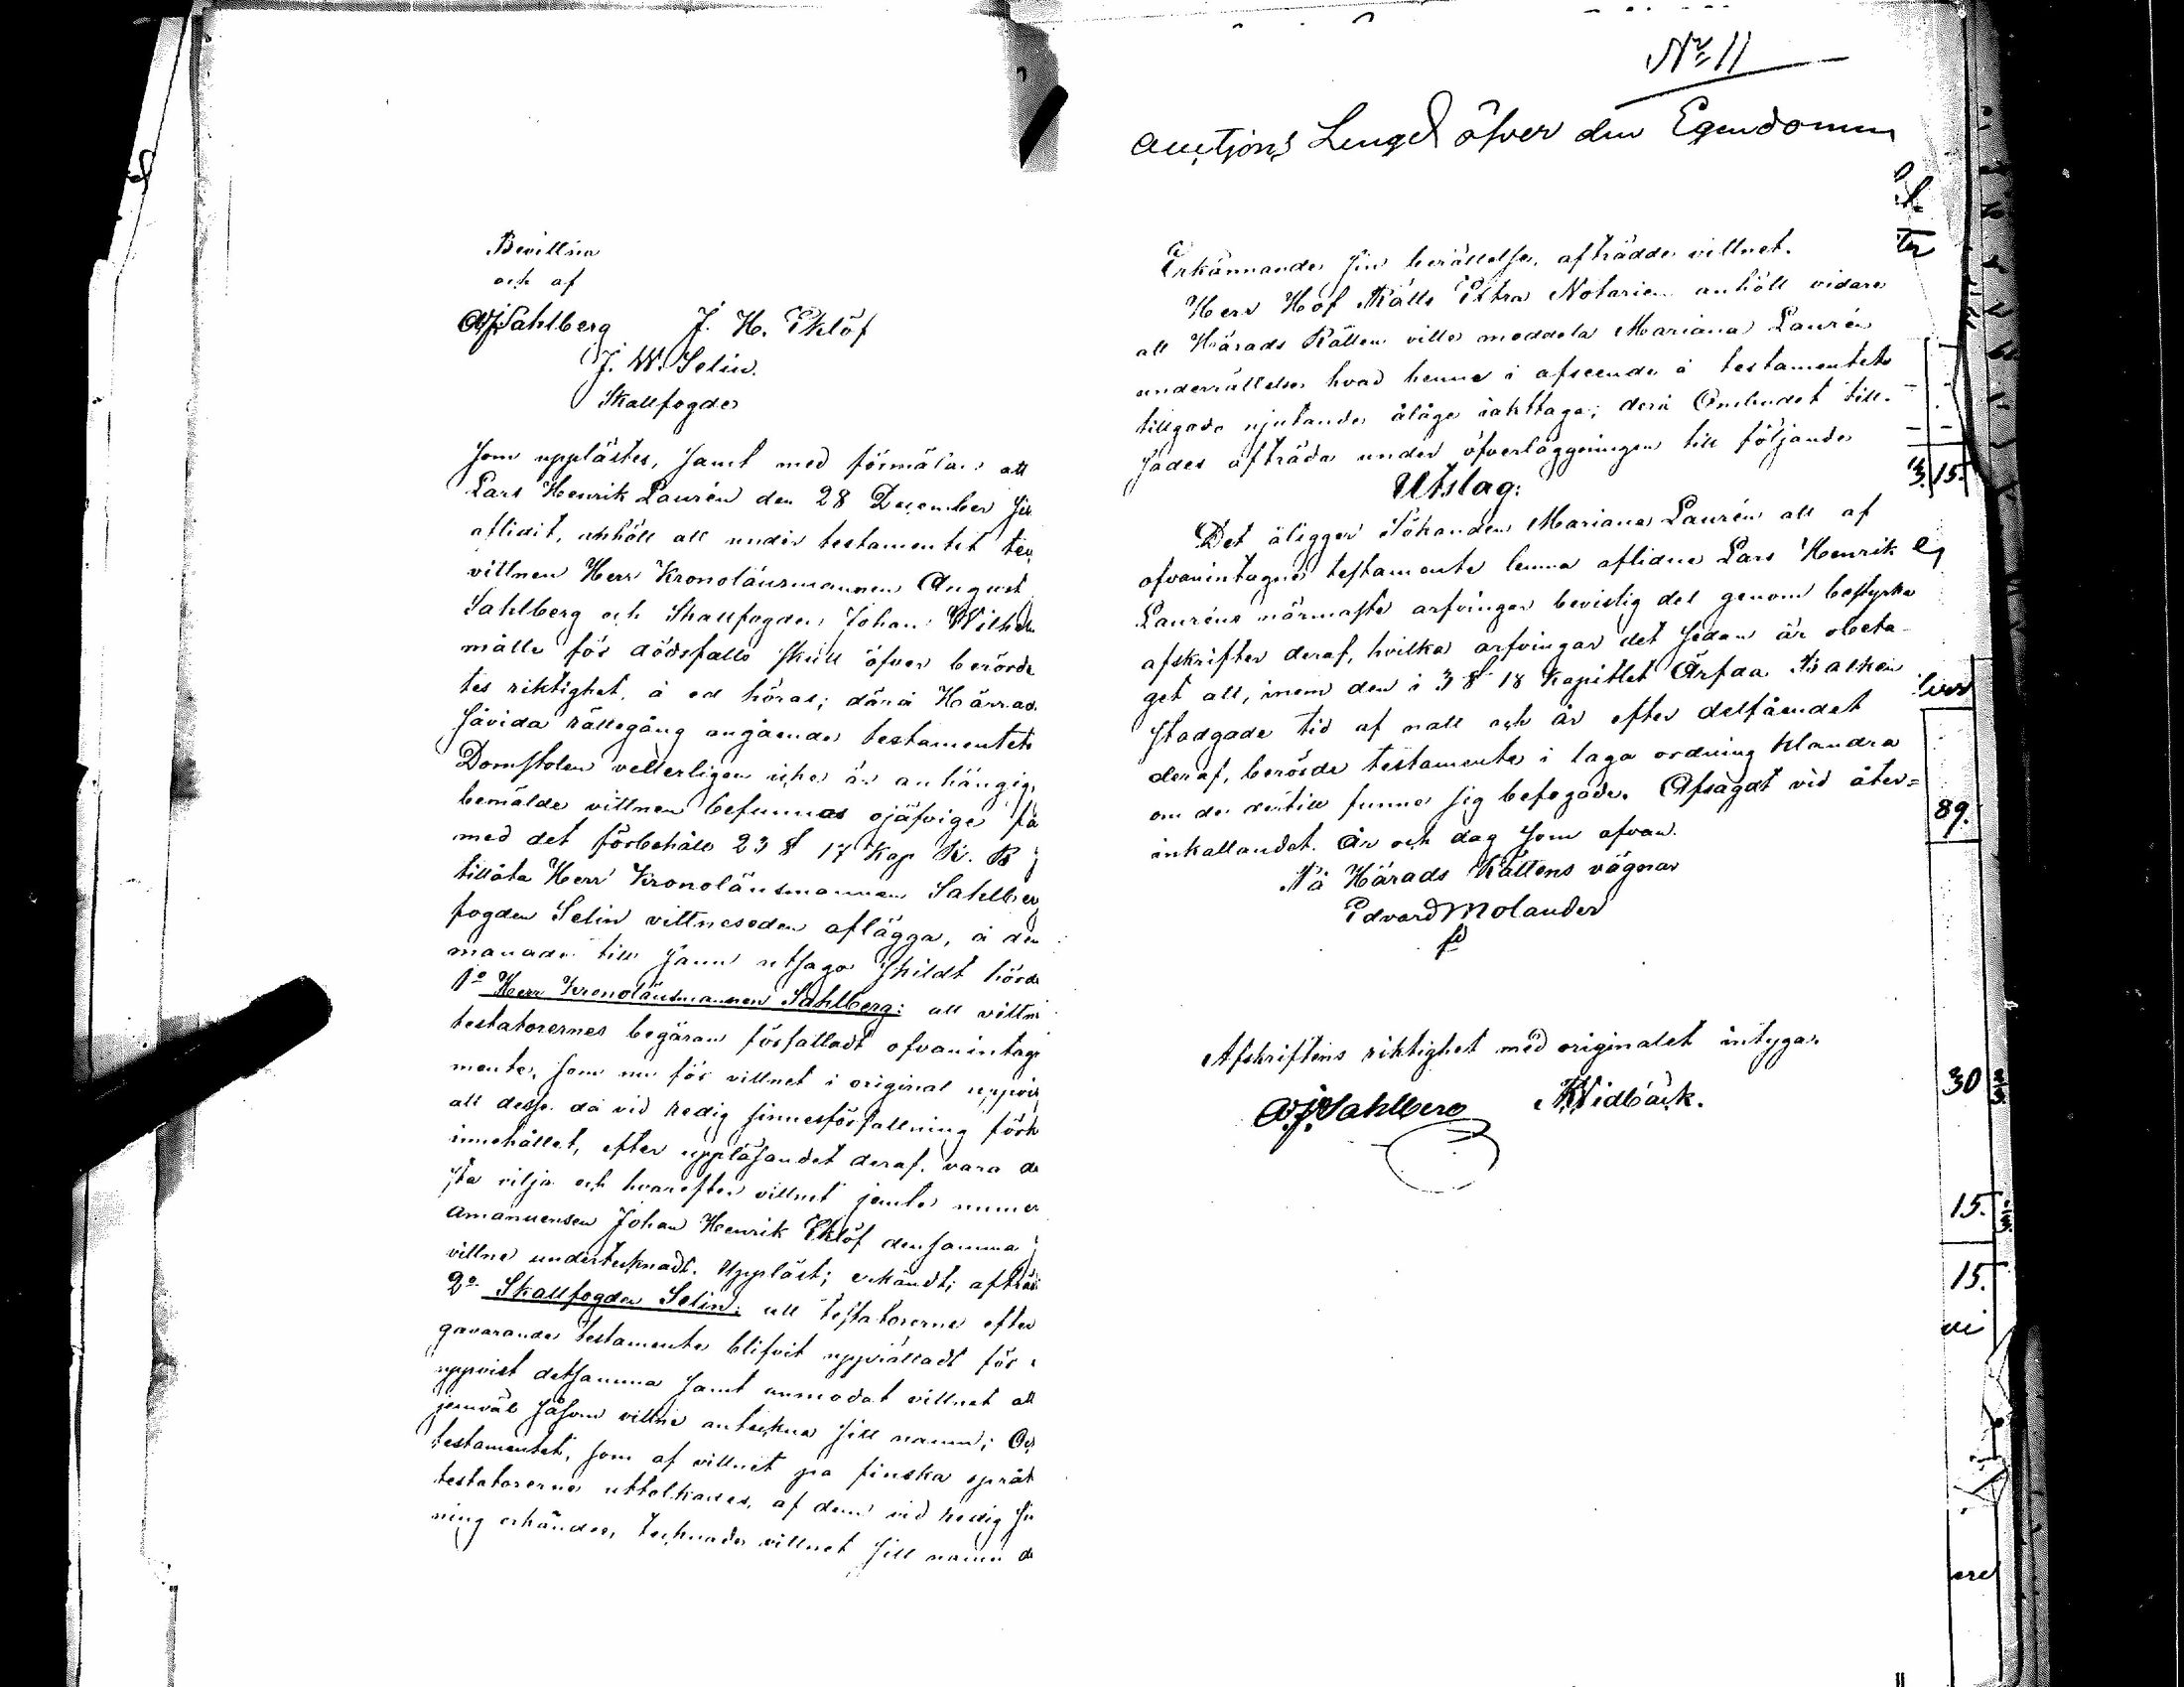 Bevittna
och af
A. J. Sahlberg J. H. Eklöf
J. W. Selin.
Skallfogde
Som upplästes, samt med förmälan att
Lars Henrik Laurén den 28 December
aflidit, anhöll att under testamentet
vittnen Herr Kronolänsmannen August
Sahlberg och Skallfogden Johan Wilhelm
målte för dödsfalls skull öfver berörde
tes riktighet å ed höras; därå Härad
såvida rättegång angående testamentets
Domstolen vetterligen icke är anhängig,
bemälde vittnen befunnos ojäfvige
med det förbehåll 23 § 17 Kap R. B
tillåta Herr Kronolänsmannen Sahlberg
fogden Selin vittneseden aflägga, å den
manade till sann utsago skildt hörde
1o Herr Kronolänsmannen Sahlberg: att vittn
testatorernes begäran författadt ofvanintag
mente, som nu för vittnet i original uppvis
att desse då vid redig sinnesförfattning förk
innehållet, efter uppläsandet deraf, vara de
sta vilja och hvarefter vittnet jemte numer
amanuensen Johan Henrik Eklöf densamma
vittne undertecknadt. Uppläst; erkändt; afträd
2o Skallfogden Selin: att testatorerne efter
gavarande testamente blifvit upprättadt för
uppvist detsamma samt anmodat vittnet att
jemväl såsom vittne anteckna sitt namn; Och
testamentet, som af vittnet på finska språk
testatorerne uttolkades, af dem vid redig sin
ning erkändes, tecknade vittnet sitt namn de
No 11
Auctjons Lengd öfver den Egendomm
Erkännande sin berättelse, afträdde vittnet.
Herr Hof Rätts Extra Notarien anhöll vidare
att Härads Rätten ville meddela Mariana Laurén
underrättelse hvad henne i afseende å testamentets
tillgodo njutande åläge iakttaga; derå Ombudet till-
sades afträda under öfverläggningen till följande
Utslag:
Det åligger Sökanden Mariana Laurén att af
ofvanintagne testamente lemna aflidne Lars Henrik
Lauréns närmaste arfvingar bevislig del genom bestyrkta
afskrifter deraf, hvilka arfvingar det sedan är obeta-
get att, inom den i 3 § 18 Kapitlet Ärfda Balken
stadgade tid af natt och år efter delfåendet
deraf, berörde testamente i laga ordning klandra
om de dertill funne sig befogade. Afsagdt vid åter-
inkallandet. År och dag som ofvan.
På Härads Rättens vägnar
Edvard Molander
Afskriftens riktighet med originalet intygar
A. J. Sahlberg Widbäck.
15.
89.
30
15.
15.